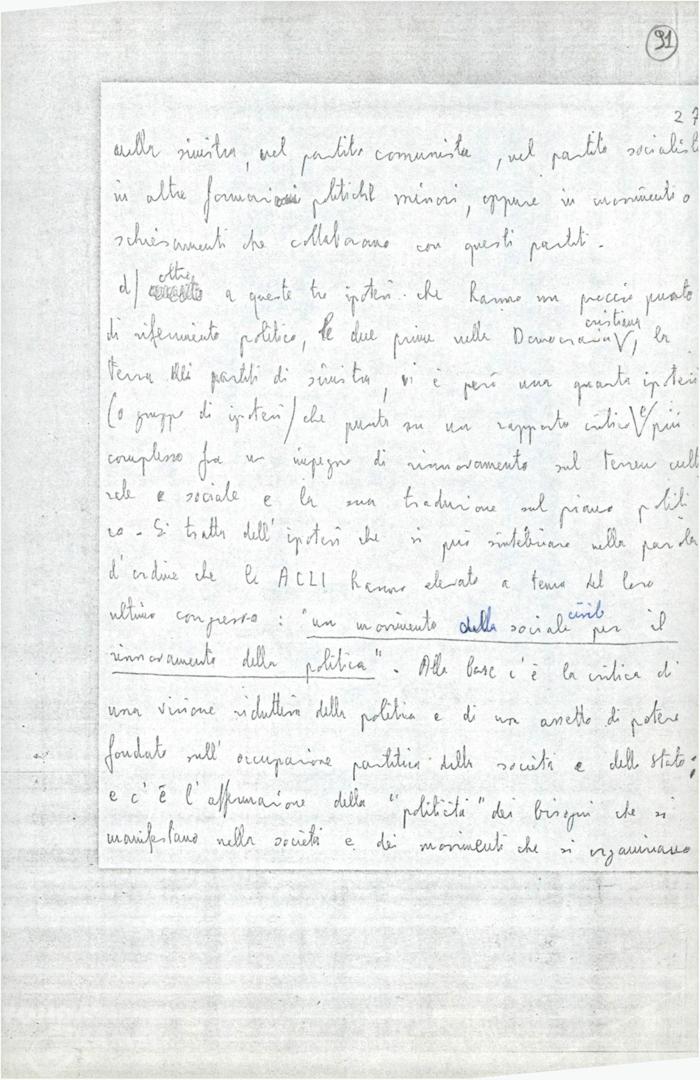 91
27
nella sinistra, nel partito comunista, nel partito socialist
in altre formazioni politiche minori, oppure in movimenti o
schieramenti che collaborano con questi partiti.
d) oltre a queste tre ipotesi che hanno un preciso punto
di riferimento politico, le due prime nella Democrazia cristiana, la
terza nei partiti di sinistra, vi è però una quarta ipotesi
(o gruppo di ipotesi) che punta su un rapporto critico e più
complesso fra un impegno di rinnovamento sul terreno cult
rale e sociale e la sua traduzione sul piano politi
co. Si tratta dell'ipotesi che si può sintetizzare nella parola
d'ordine che le ACLI hanno elevato a tema del loro
ultimo congresso: "un movimento della sociale civile per il
rinnovamento della politica". Alla base c'è la critica di
una visione riduttiva della politica e di un assetto di potere
fondato sull'occupazione partitica della società e dello stato;
e c'è l'affermazione della "politicità" dei bisogni che si
manifestano nella società e dei movimenti che si organizzano